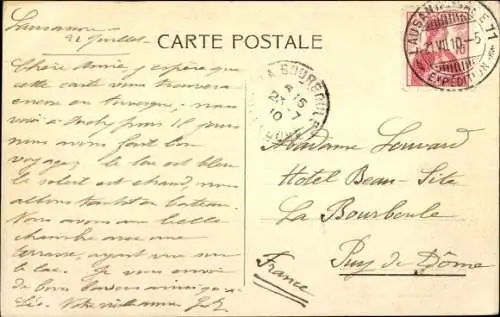 Lausanne
21 Juillet
CARTE POSTALE
Chère Amie, j'espère que
cette carte vous trouvera
encore en Auvergne, nous
voici à Ouchy pour 15 jours
nous avons fait bon
voyage, le lac est bleu
le soleil est chaud, nous
allons tantôt en bateau.
Nous avons une belle
chambre avec une
terrasse, ayant vue sur
le lac. Je vous envoie
de bons baisers ainsi qu'à
Léo. Votre vieille amie
LAUSANNE
21 VII 10 - 5
EXPEDITION
LA BOURBOULE
15
23 - 7
10
Madame
Hotel Beau-Site
La Bourboule
Puy de Dôme
France